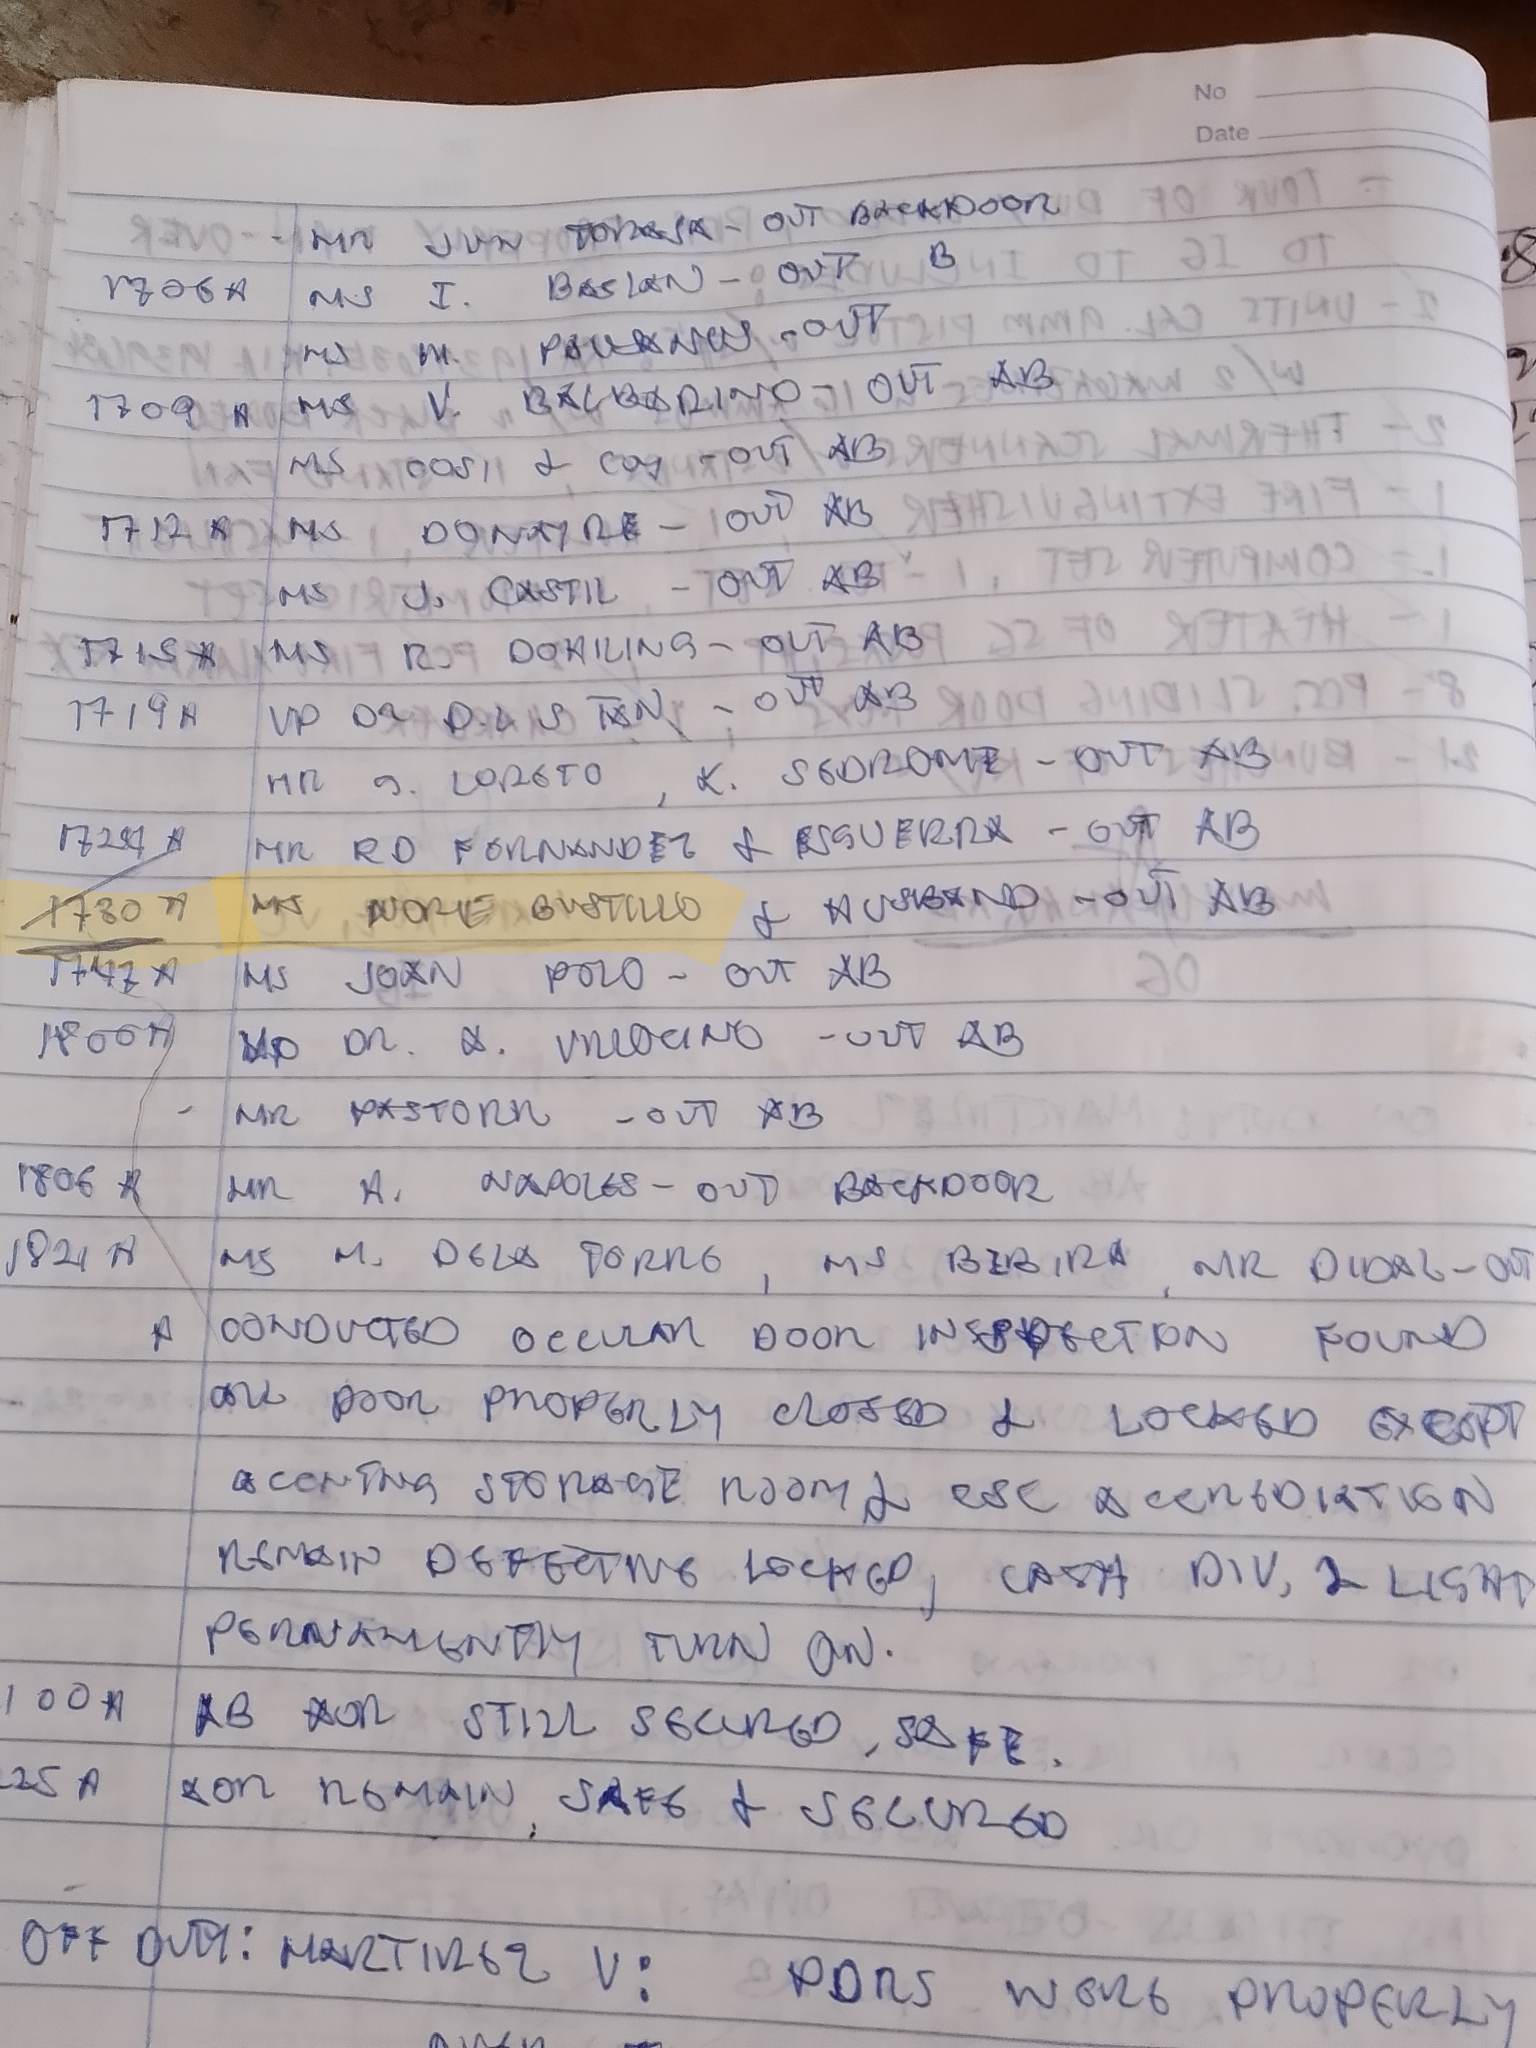 No
Date
- MR JUN - OUT BACKDOOR
1706A MS I. BASLAN - OUT B
MS M. - OUT
1709 A MS V. BALBARINO - OUT AB
MS & COY - OUT AB
1712 A MS DONAIRE - OUT AB
MS J. CASTIL - OUT AB
1715A MS R. DOHILING - OUT AB
1719A VP TAN - OUT AB
MR G. LORETO, K. SEDROME - OUT AB
A MR RD FERNANDEZ & ESGUERRA - OUT AB
1730 A MS NORIE BUSTILLO & HUSBAND - OUT AB
1747 A MS JOAN POLO - OUT AB
1800A VP DR. A. - OUT AB
- MR PASTORR - OUT AB
1806 A MR A. NAPOLES - OUT BACKDOOR
1821 A MS M. DELA TORRE, MS BEBIRA, MR DIDAL - OUT
A CONDUCTED OCCULAR DOOR INSPECTION FOUND
ALL DOOR PROPERLY CLOSED & LOCKED EXCEPT
STORAGE ROOM & ACCREDIATION
REMAIN DEFECTIVE LOCKED, CASH DIV, 2 LIGHT
PERNAMENTLY TURN ON.
100A AB AOR STILL SECURED, SAFE.
25A AOR REMAIN, SAFE & SECURED
OFF DUTY: MARTIREZ V: PDRS WERE PROPERLY